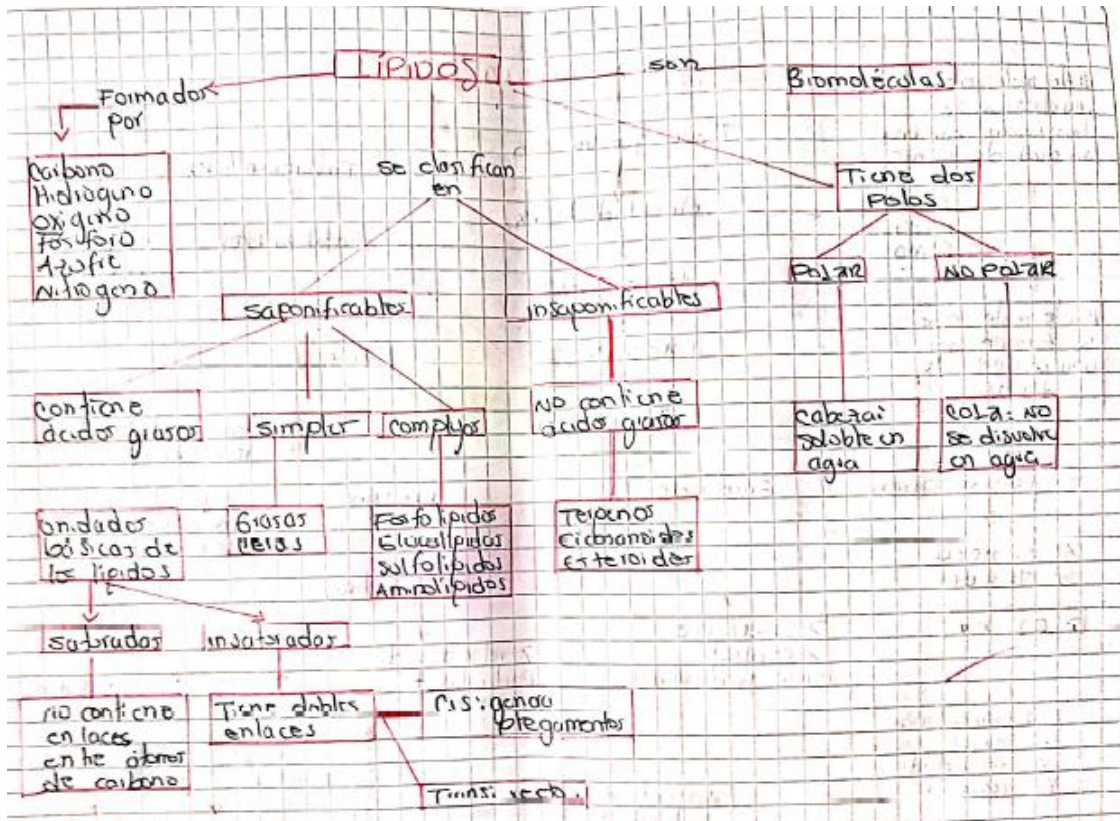 LÍPIDOS
son
Biomoléculas
Formador
por
Carbono
Hidrógeno
Oxígeno
Fósforo
Azufre
Nitrógeno
se clasifican
en
Tiene dos
Polos
POLAR
NO POLAR
saponificables
insaponificables
contiene
ácidos grasos
simples
complejos
NO contiene
ácidos grasos
Cabeza:
soluble en
agua
COLA: NO
se disuelve
en agua
unidades
básicas de
los lípidos
Grasas
ceras
Fosfolípidos
Glucolípidos
sulfolípidos
Aminolípidos
Terpenos
Esteroides
saturados
insaturados
no contiene
enlaces
entre átomos
de carbono
Tiene dobles
enlaces
Cis: genera
plegamentos
Trans: recto.